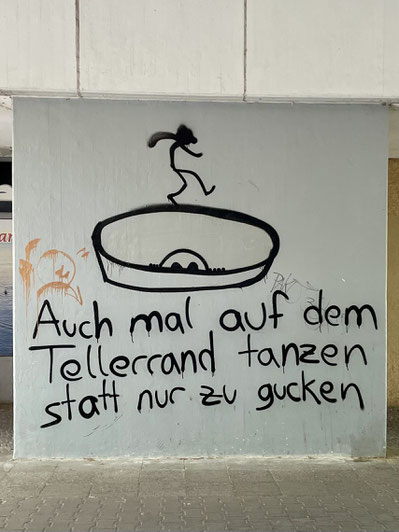 Auch mal auf dem
Tellerrand tanzen
statt nur zu gucken